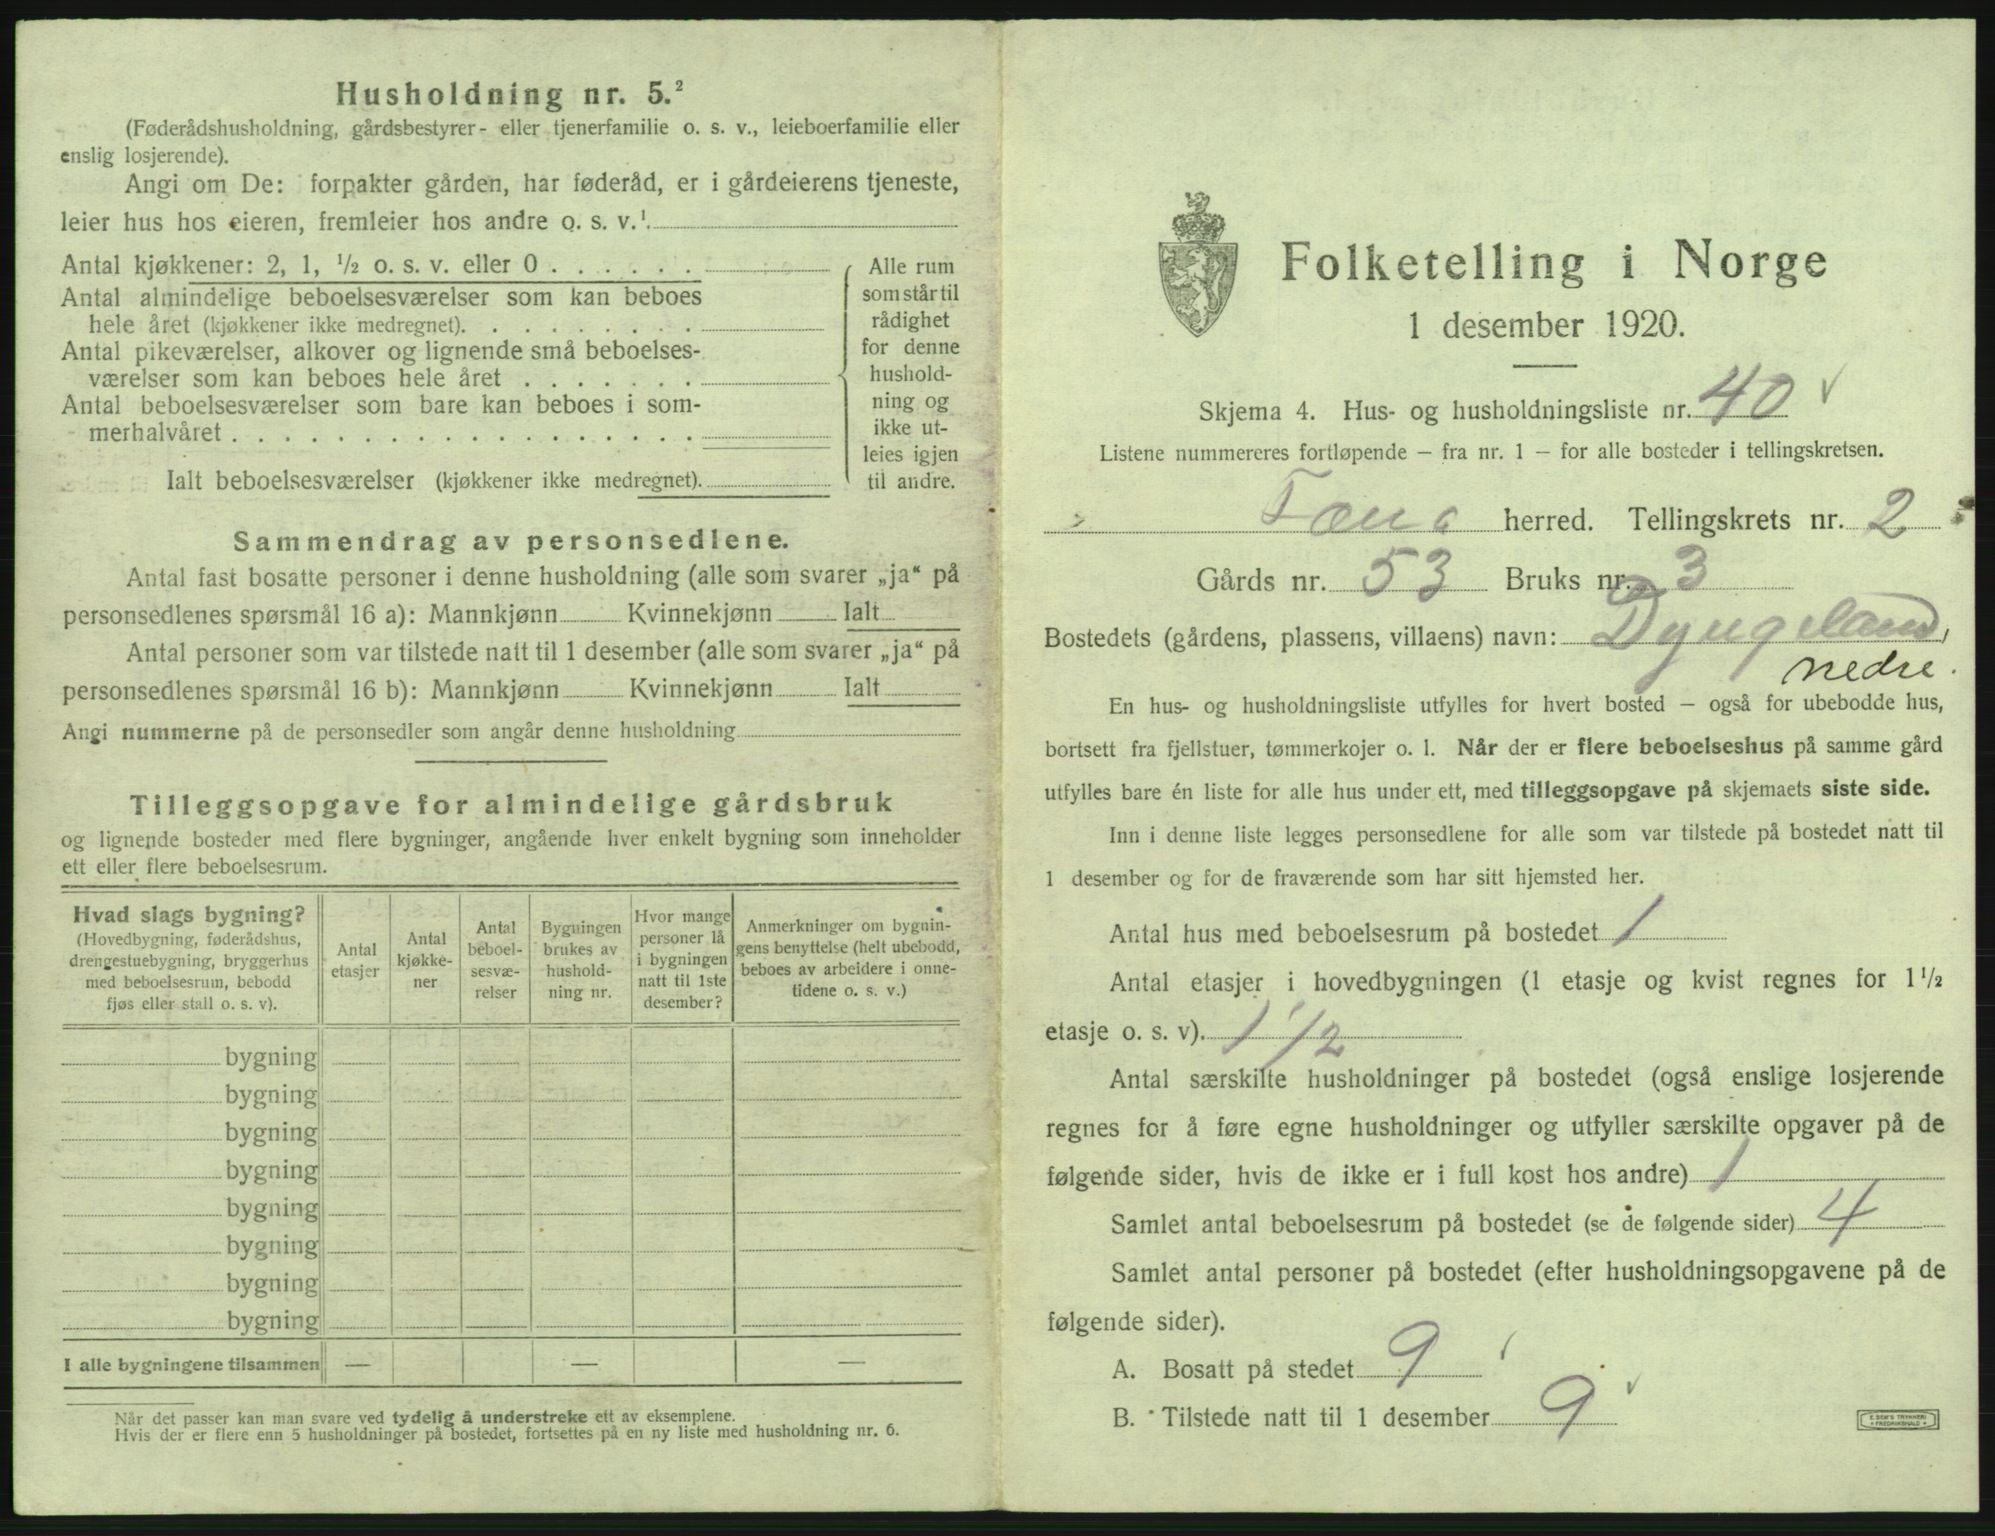 Husholdning nr. 5.²
(Føderådshusholdning, gårdsbestyrer- eller tjenerfamilie o. s. v., leieboerfamilie eller
enslig losjerende).
Angi om De: forpakter gården, har føderåd, er i gårdeierens tjeneste,
leier hus hos eieren, fremleier hos andre o. s. v.¹
Antal kjøkkener: 2, 1, ½ o. s. v. eller 0 . . . . . .
Antal almindelige beboelsesværelser som kan beboes
hele året (kjøkkener ikke medregnet). . . . . . . . .
Antal pikeværelser, alkover og lignende små beboelses-
værelser som kan beboes hele året . . . . . . .
Antal beboelsesværelser som bare kan beboes i som-
merhalvåret . . . . . . . . . . . . . . . . . .
Ialt beboelsesværelser (kjøkkener ikke medregnet).
Alle rum
som står til
rådighet
for denne
hushold-
ning og
ikke ut-
leies igjen
til andre.
Sammendrag av personsedlene.
Antal fast bosatte personer i denne husholdning (alle som svarer „ja“ på
personsedlenes spørsmål 16 a): Mannkjønn Kvinnekjønn Ialt
Antal personer som var tilstede natt til 1 desember (alle som svarer „ja“ på
personsedlenes spørsmål 16 b): Mannkjønn Kvinnekjønn Ialt
Angi nummerne på de personsedler som angår denne husholdning
Tilleggsopgave for almindelige gårdsbruk
og lignende bosteder med flere bygninger, angående hver enkelt bygning som inneholder
ett eller flere beboelsesrum.
Hvad slags bygning?
(Hovedbygning, føderådshus,
drengestuebygning, bryggerhus
med beboelsesrum, bebodd
fjøs eller stall o. s. v).
Antal
etasjer
Antal
kjøkke-
ner
Antal
beboel-
sesvæ-
relser
Bygningen
brukes av
hushold-
ning nr.
Hvor mange
personer lå
i bygningen
natt til 1ste
desember?
Anmerkninger om bygnin-
gens benyttelse (helt ubebodd,
beboes av arbeidere i onne-
tidene o. s. v.)
bygning
bygning
bygning
bygning
bygning
bygning
bygning
bygning
I alle bygningene tilsammen — — —
Når det passer kan man svare ved tydelig å understreke ett av eksemplene.
Hvis der er flere enn 5 husholdninger på bostedet, fortsettes på en ny liste med husholdning nr. 6.
Folketelling i Norge
1 desember 1920.
Skjema 4. Hus- og husholdningsliste nr. 40 ✓
Listene nummereres fortløpende — fra nr. 1 — for alle bosteder i tellingskretsen.
Fana herred. Tellingskrets nr. 2
Gårds nr. 53 Bruks nr. 3
Bostedets (gårdens, plassens, villaens) navn: Dyngeland,
nedre.
En hus- og husholdningsliste utfylles for hvert bosted — også for ubebodde hus,
bortsett fra fjellstuer, tømmerkojer o. l. Når der er flere beboelseshus på samme gård
utfylles bare én liste for alle hus under ett, med tilleggsopgave på skjemaets siste side.
Inn i denne liste legges personsedlene for alle som var tilstede på bostedet natt til
1 desember og for de fraværende som har sitt hjemsted her.
Antal hus med beboelsesrum på bostedet 1
Antal etasjer i hovedbygningen (1 etasje og kvist regnes for 1½
etasje o. s. v). 1 1/2
Antal særskilte husholdninger på bostedet (også enslige losjerende
regnes for å føre egne husholdninger og utfyller særskilte opgaver på de
følgende sider, hvis de ikke er i full kost hos andre) 1
Samlet antal beboelsesrum på bostedet (se de følgende sider) 4
Samlet antal personer på bostedet (efter husholdningsopgavene på de
følgende sider).
A. Bosatt på stedet 9
B. Tilstede natt til 1 desember 9 ✓
E. SEM'S TRYKKERI
FREDRIKSHALD